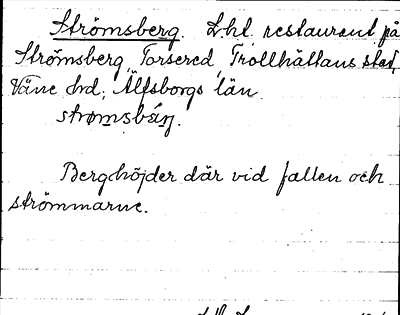 Strömsberg. L. hl. restaurant på
Strömsberg, Torsered, Trollhättans stad,
Väne hd; Älfsborgs län.
strömsbärj.
Bergshöjder där vid fallen och
strömmarne.